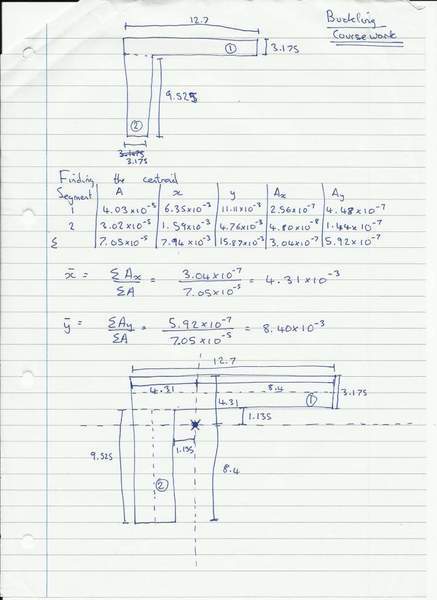 Buckling
Coursework
12.7
①
3.175
9.525
②
3.175
Finding the centroid
Segment A x y Ax Ay
1 4.03×10⁻⁵ 6.35×10⁻³ 11.11×10⁻³ 2.56×10⁻⁷ 4.48×10⁻⁷
2 3.02×10⁻⁵ 1.59×10⁻³ 4.76×10⁻³ 4.80×10⁻⁸ 1.44×10⁻⁷
Σ 7.05×10⁻⁵ 7.94×10⁻³ 15.87×10⁻³ 3.04×10⁻⁷ 5.92×10⁻⁷
x̄ = ΣAx / ΣA = 3.04×10⁻⁷ / 7.05×10⁻⁵ = 4.31×10⁻³
ȳ = ΣAy / ΣA = 5.92×10⁻⁷ / 7.05×10⁻⁵ = 8.40×10⁻³
12.7
4.31 8.4
3.175
4.31 ①
1.135
9.525
1.135
8.4
②